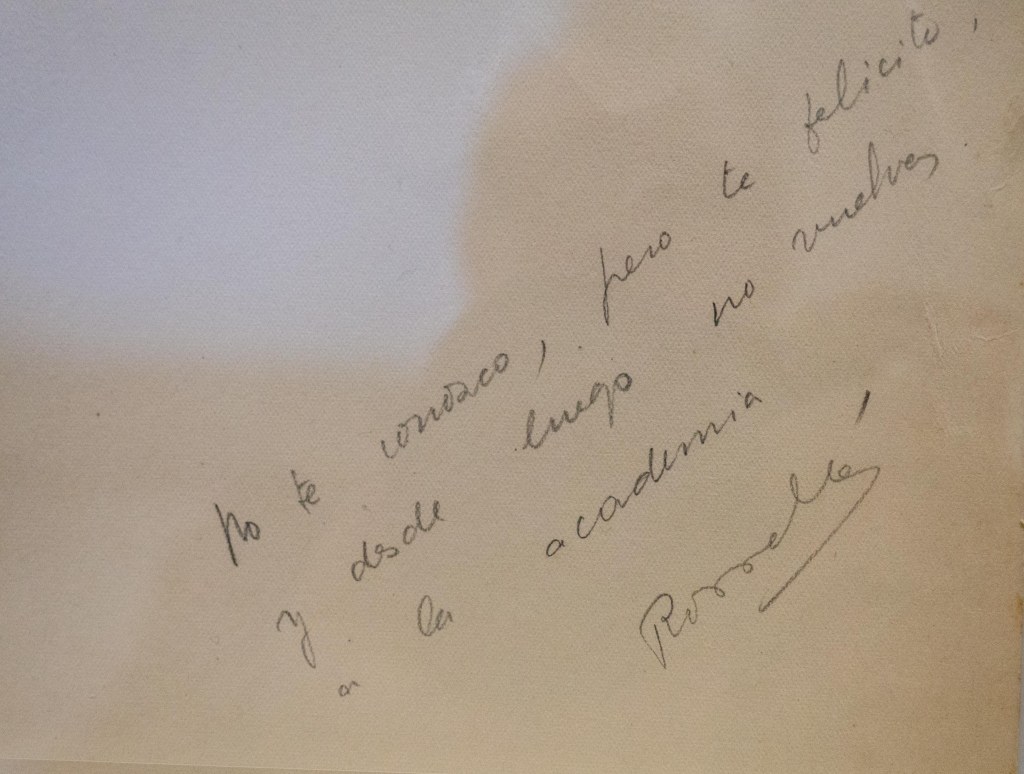 No te conozco, pero te felicito,
y desde luego no vuelvas
a la academia,
Rosselló